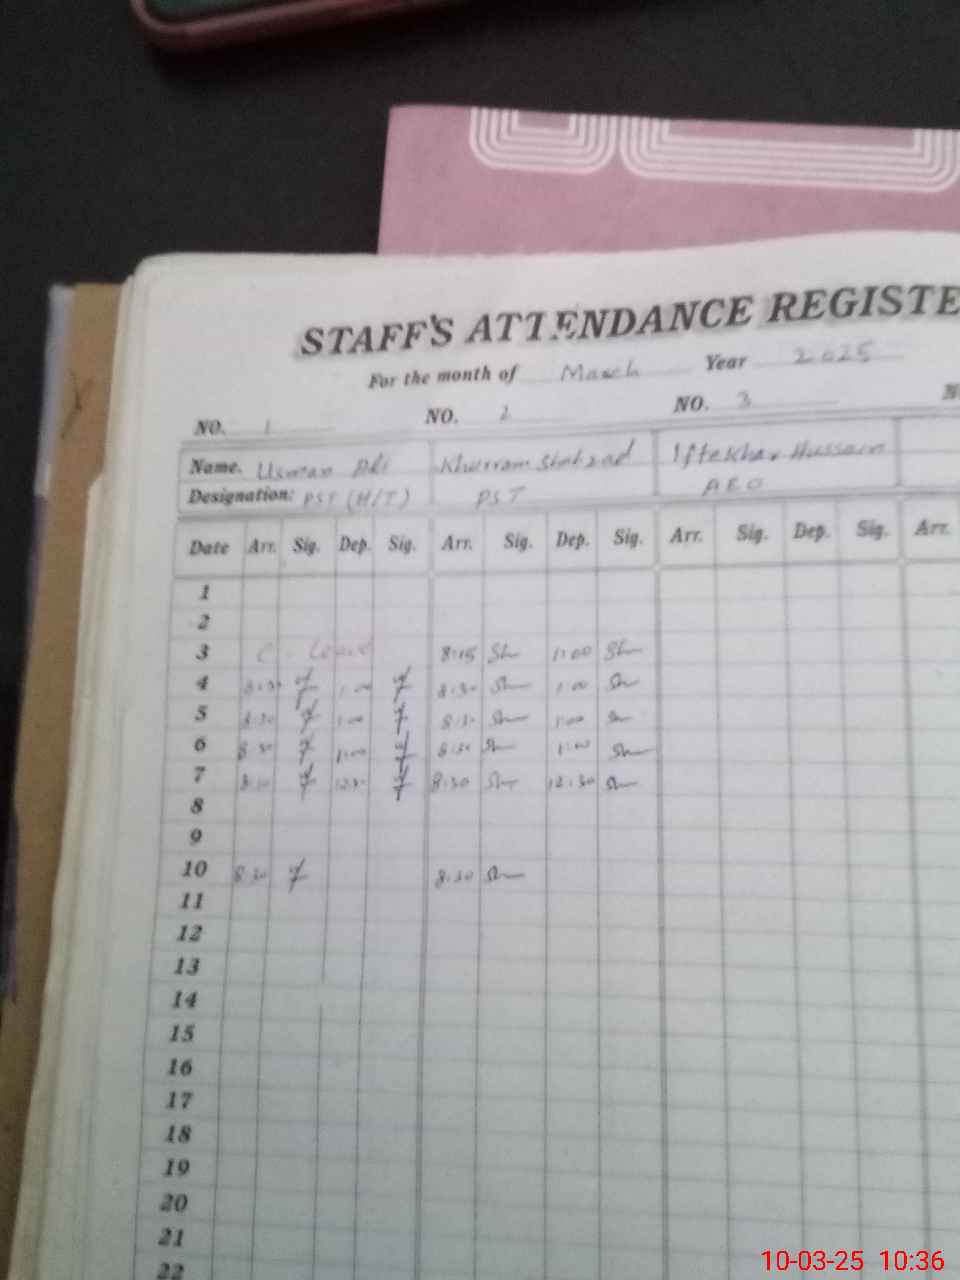 STAFF'S ATTENDANCE REGISTE
For the month of March Year 2025
NO. 1 NO. 2 NO. 3
Name. Usman Ali Khurram Shahzad Iftekhar Hussain
Designation: PST (H/T) PST AEO
Date Arr. Sig. Dep. Sig. Arr. Sig. Dep. Sig. Arr. Sig. Dep. Sig. Arr.
1
2
3 C. Leave 8:15 Sh 1:00 Sh
4 8:30 1:00 8:30 Sh 1:00 Sh
5 8:30 1:00 8:30 Sh 1:00 Sh
6 8:30 1:00 8:30 Sh 1:00 Sh
7 8:30 12:30 8:30 Sh 12:30 Sh
8
9
10 8:30 8:30 Sh
11
12
13
14
15
16
17
18
19
20
21
22
10-03-25 10:36